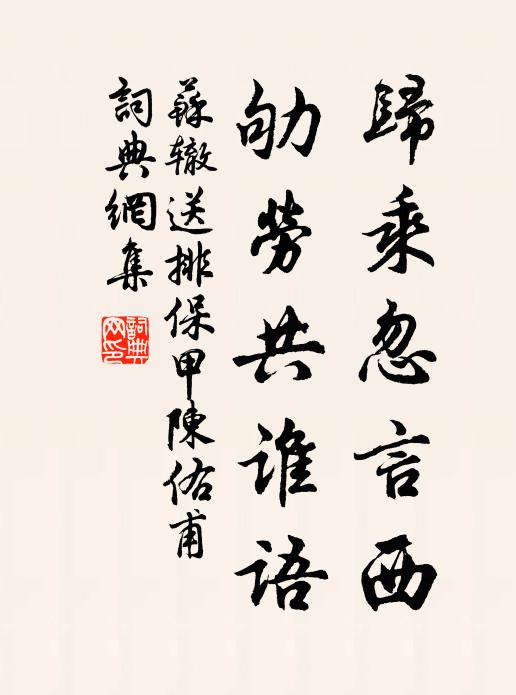 歸乘忽言西
劬勞共誰語
蘇辙送排保甲陳佑甫
詞典網集
詞典网印